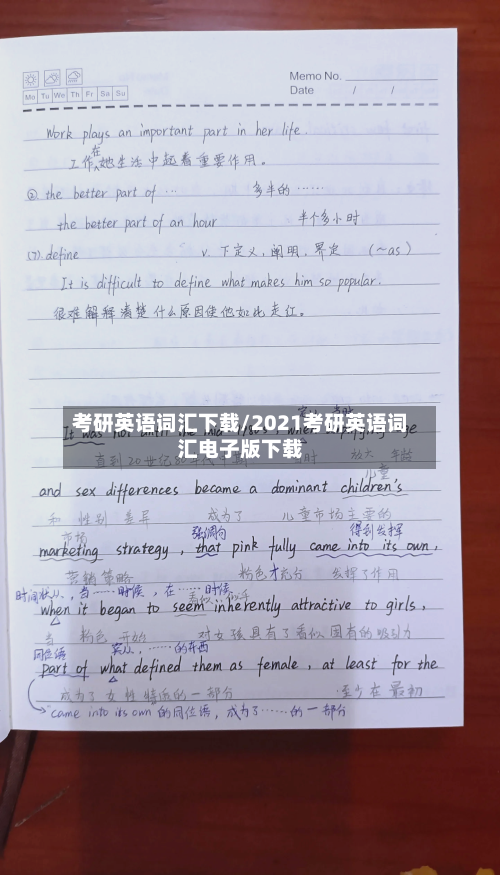 Memo No.
Mo Tu We Th Fr Sa Su
Date / /
Work plays an important part in her life.
工作在她生活中起着重要作用。
② the better part of … 多半的……
the better part of an hour 半个多小时
(7).define v. 下定义，阐明，界定 (~as)
It is difficult to define what makes him so popular.
很难解释清楚什么原因使他如此走红。
考研英语词汇下载/2021考研英语词
汇电子版下载
It was not until the mid-1980s, when amplifying age
直到20世纪80年代 时 放大 年龄
儿童
and sex differences became a dominant children's
和 性别 差异 成为了 儿童市场主要的
市场 强调句 得到发挥
marketing strategy , that pink fully came into its own ,
营销策略 粉色才充分 发挥了作用
时间状从，当……时候，在……时候
when it began to seem inherently attractive to girls ,
当 粉色 开始 对女孩具有了看似固有的吸引力
同位语 宾从，……的东西
part of what defined them as female , at least for the
成为了女性特征的一部分 至少在最初
came into its own 的同位语，成为了……的一部分